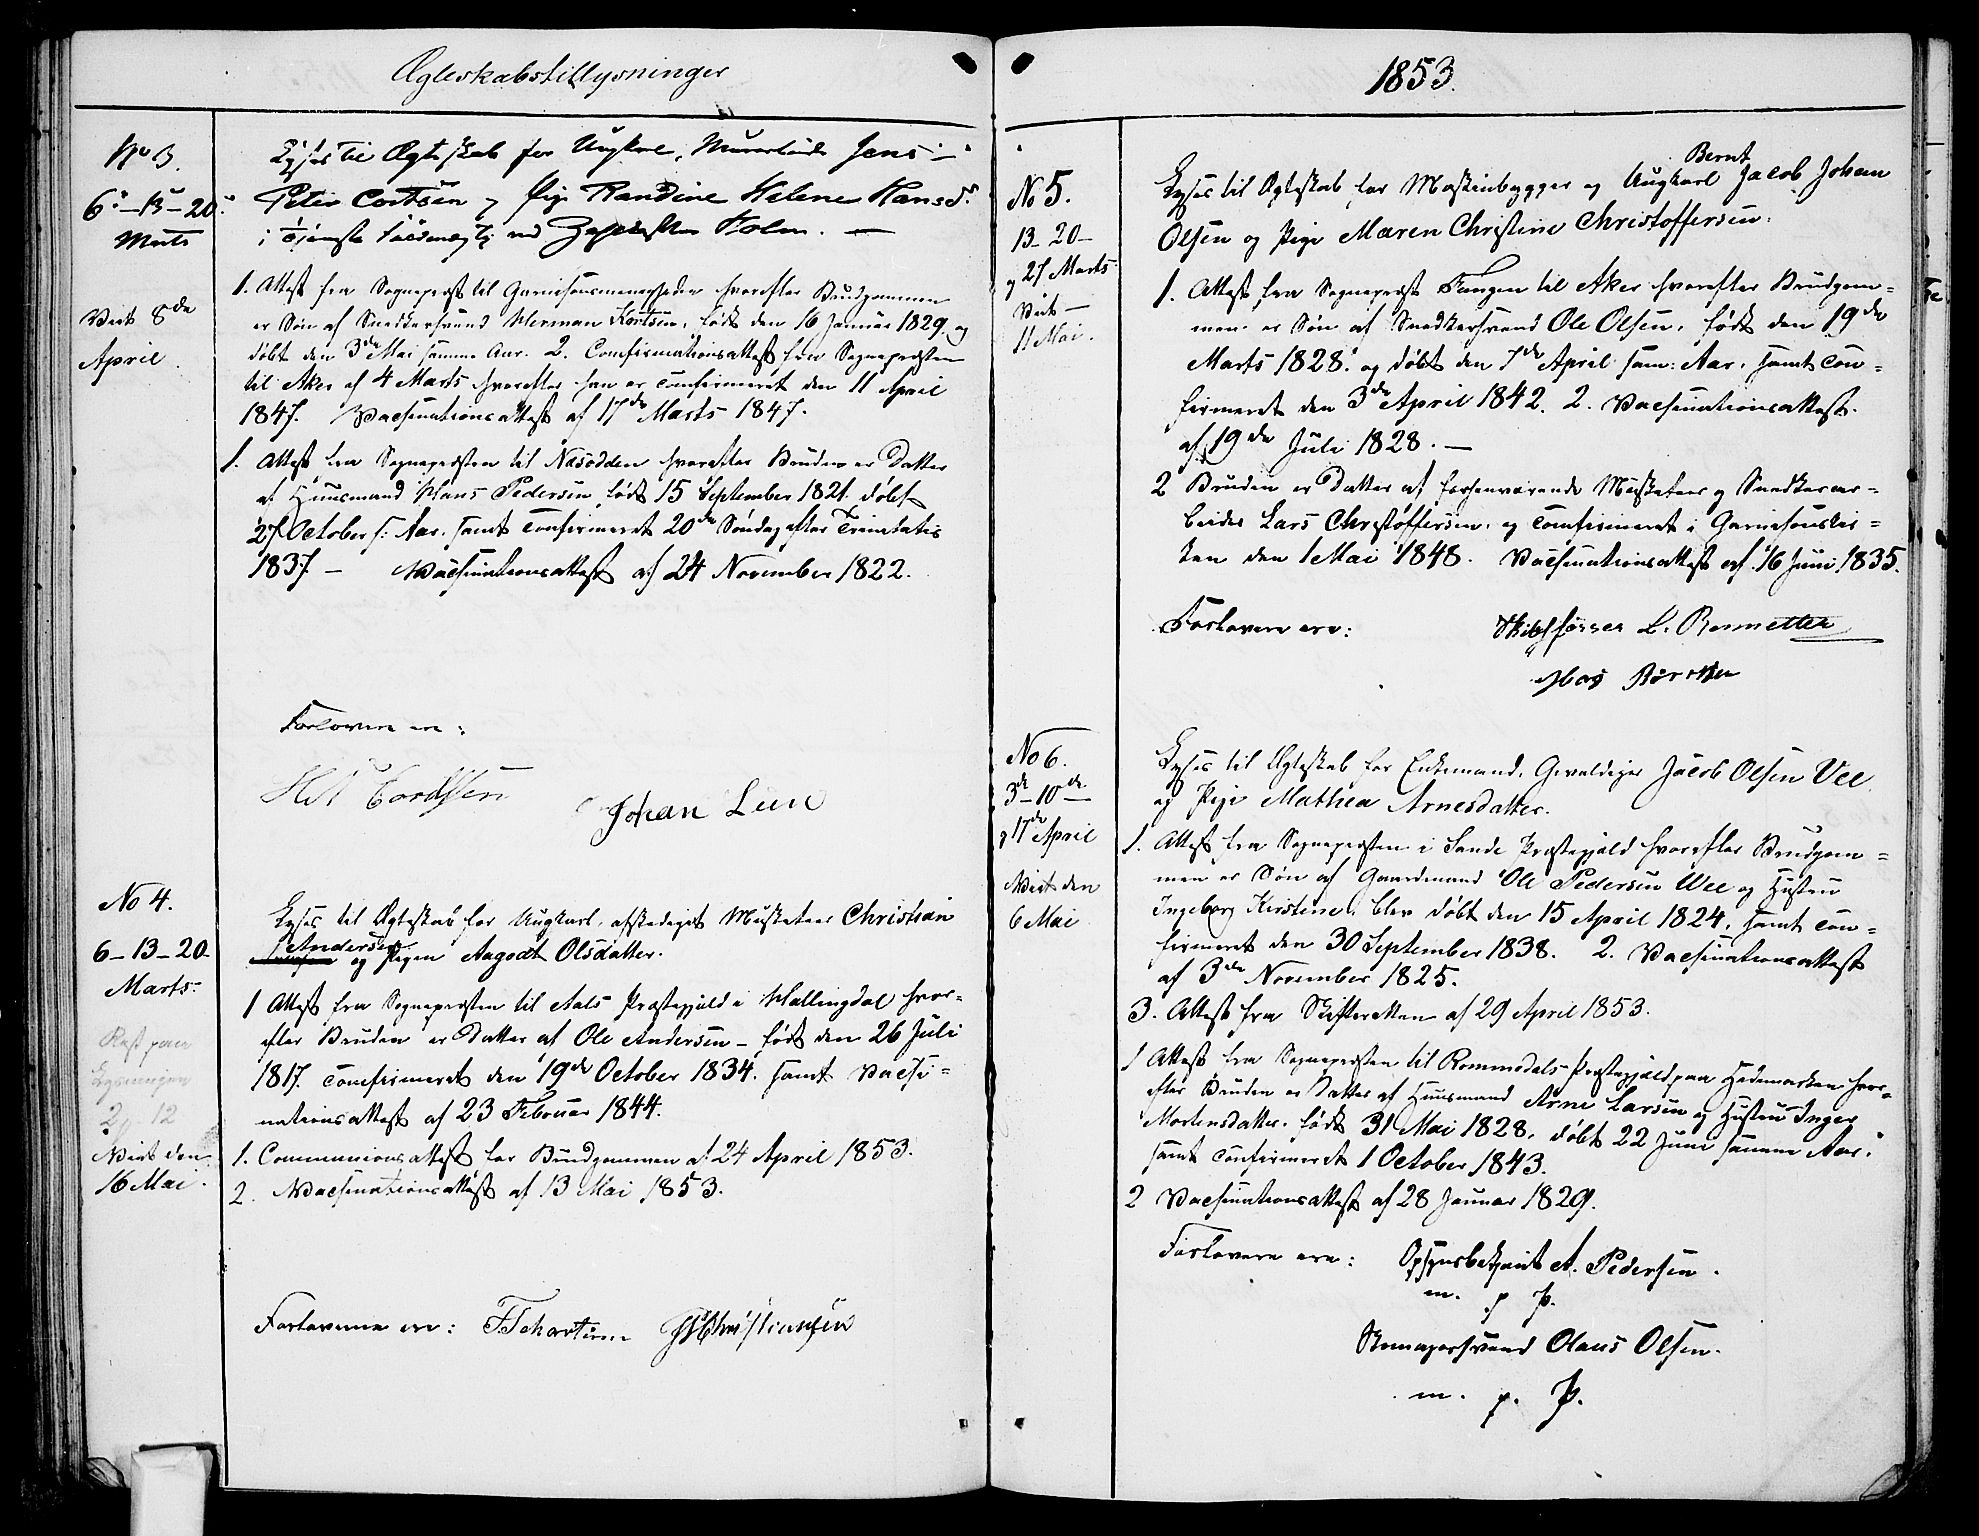 Ægteskabstillysninger
No 3.
6te – 13 – 20.
Marts
Viet 8de
April.
Lyses til Ægteskab for Ungkarl, Jens
Peter Cortsen og Pige Randine Helene Hansd.
i Tjeneste ved Holm. —
1. Attest fra Sognepræst til Garnisonsmenigheden hvorefter Brudgommen
er Søn af Snedkersvend Herman Kortsen, født den 16 Januar 1829 og
døbt den 3de Mai samme Aar. 2. Confirmationsattest fra Sognepræsten
til Aker af 4 Marts hvorefter han er confirmeret den 11 April
1847. Vacsinationsattest af 17de Marts 1847.
1. Attest fra Sognepræsten til Næsodden hvorefter Bruden er Datter
af Huusmand Hans Pedersen, født 15 September 1821. døbt
27 October s. Aar, samt Confirmeret 20de Søndag efter Trinitatis
1837. – Vacsinationsattest af 24 November 1822.
Forlovere ere:
Cordtsen
Johan Lein
No 4.
6 – 13 – 20
Marts.
Lysningen
Viet den
16 Mai.
Lyses til Ægteskab for Ungkarl, afskediget Musketeer Christian
Andersen og Pigen Aagodt Olsdatter.
1 Attest fra Sognepræsten til Aals Præstegjæld i Hallingdal hvor-
efter Bruden er Datter af Ole Andersen – født den 26 Juli
1817. Confirmeret den 19de October 1834. samt Vacsi-
nationsattest af 23 Februar 1844.
1. Communionsattest for Brudgommen af 24 April 1853.
2. Vacsinationsattest af 13 Mai 1853.
Forloverne ere: Christiansen
1853.
No 5.
13 – 20 –
og 27 Marts
Viet –
11 Mai.
Bernt
Lyses til Ægteskab for Maskinbygger og Ungkarl Jacob Johan
Olsen og Pige Maren Christine Christoffersen.
1. Attest fra Sognepræst Fangen til Aker hvorefter Brudgom-
men er Søn af Snedkersvend Ole Olsen, født den 19de
Marts 1828. og døbt den 7de April sam: Aar, samt con-
firmeret den 3de April 1842. 2. Vacsinationsattest
af 19de Juli 1828. —
2 Bruden er Datter af forhenværende Musketeer og Snedkerar-
beider Lars Christoffersen, og Confirmeret i Garnisonskir-
ken den 1 Mai 1848. Vacsinationsattest af 16 Juni 1835.
Forlovere ere: L. Bennetter
No 6.
3de – 10de –
og 17de April
Viet den
6 Mai
Lyses til Ægteskab for Enkemand, Gevaldiger Jacob Olsen Vee
og Pige Mathea Arnesdatter.
1. Attest fra Sognepræsten i Sande Præstegjæld hvorefter Brudgom-
men er Søn af Gaardmand Ole Pedersen Wee og Hustru
Ingeborg Kirstine, blev døbt den 15 April 1824, samt con-
firmeret den 30 September 1838. 2. Vacsinationsattest
af 3de November 1825.
3. Attest fra Skifteretten af 29 April 1853.
1 Attest fra Sognepræsten til Rommedals Præstegjæld paa Hedemarken hvor-
efter Bruden er Datter af Huusmand Arne Larsen og Hustru Inger
Mortensdatter, født 31 Mai 1828, døbt 22 Juni samme Aar,
samt Confirmeret 1 October 1843.
2 Vacsinationsattest af 28 Januar 1829.
Forlovere ere: A. Pedersen.
m. p. P.
Skomagersvend Olaus Olsen.
m. p. P.